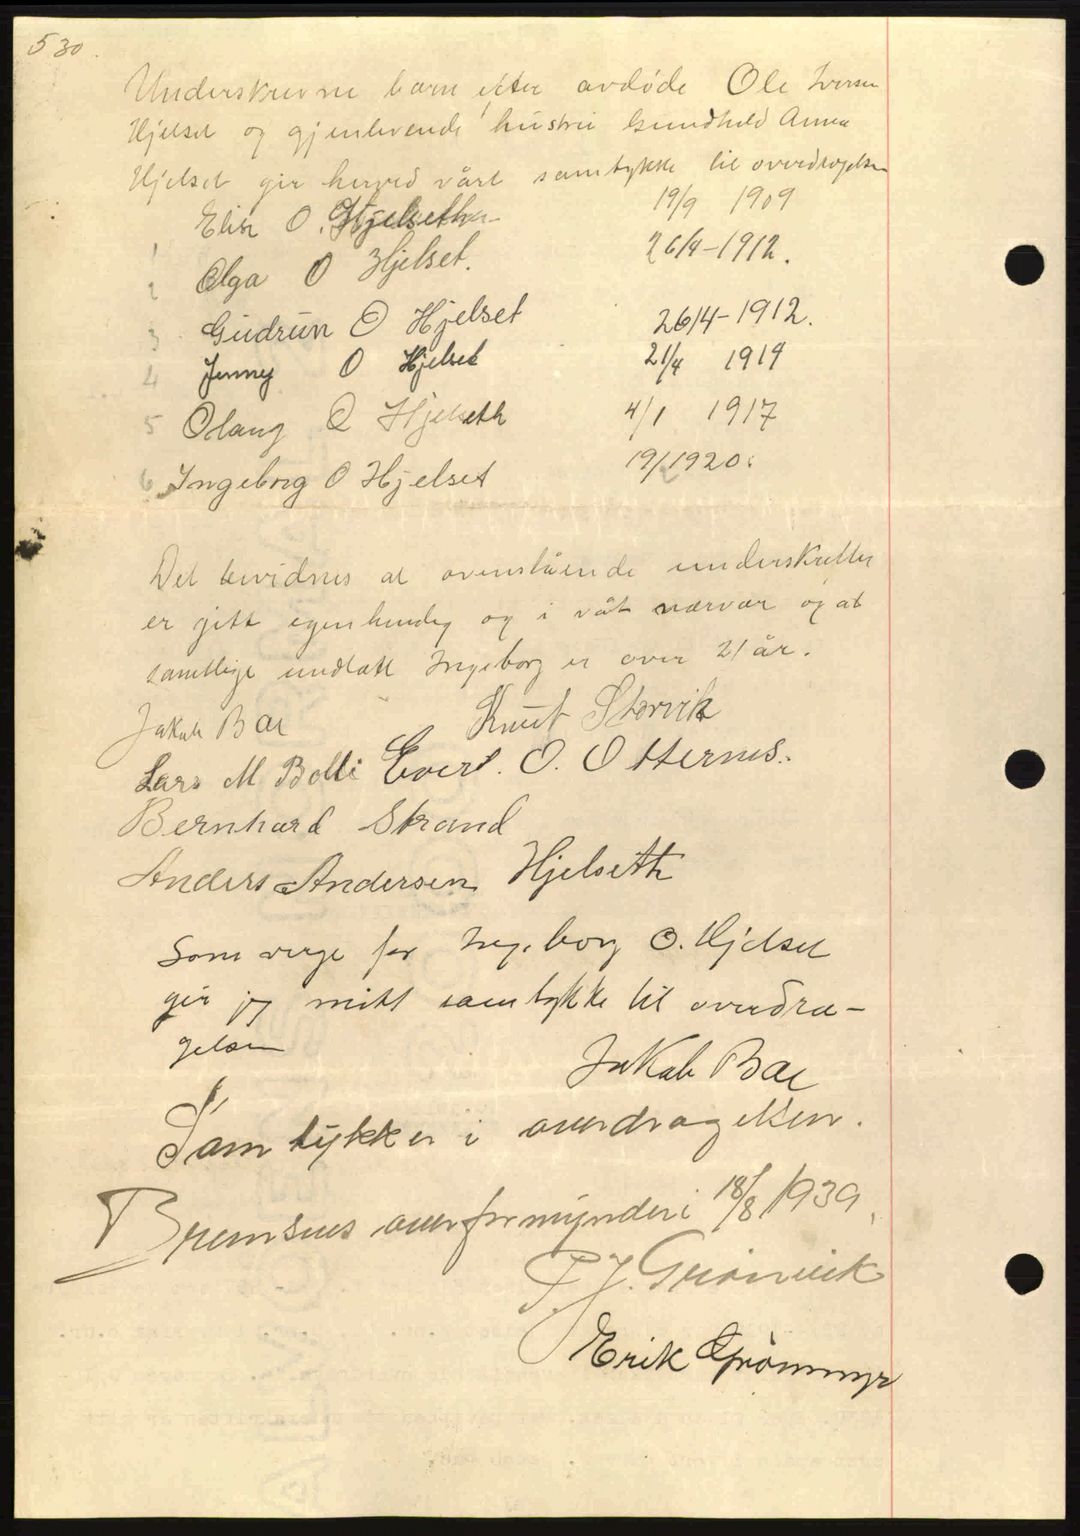 530.
Underskrevne barn efter avdøde Ole Iversen
Hjelset og gjenlevende hustru Gundhild Anna
Hjelset gir herved vårt samtykke til overdragelsen
1 Elise O. Hjelseth 19/9 1909
2 Olga O Hjelset. 26/4-1912.
3 Gudrun O Hjelset 26/4-1912.
4 Jenny O Hjelset 21/4 1914
5 Olaug O Hjelseth 4/1 1917
6 Ingeborg O Hjelset 19/2 1920.
Det bevidnes at ovenstående underskrifter
er gitt egenhendig og i våt nærvær og at
samtlige undtatt Ingeborg er over 21 år.
Jakob Bae Knut Storvik
Lars M Bolli Evert. O. Otternes.
Bernhard Strand
Anders Andersen Hjelseth
Som verge for Ingeborg O. Hjelset
gir jeg mitt samtykke til overdra-
gelsen
Jakob Bae
Samtykker i overdragelsen.
Bremsnes overformynderi 18/8 1939.
P. J. Grønvik
Erik Grønmyr